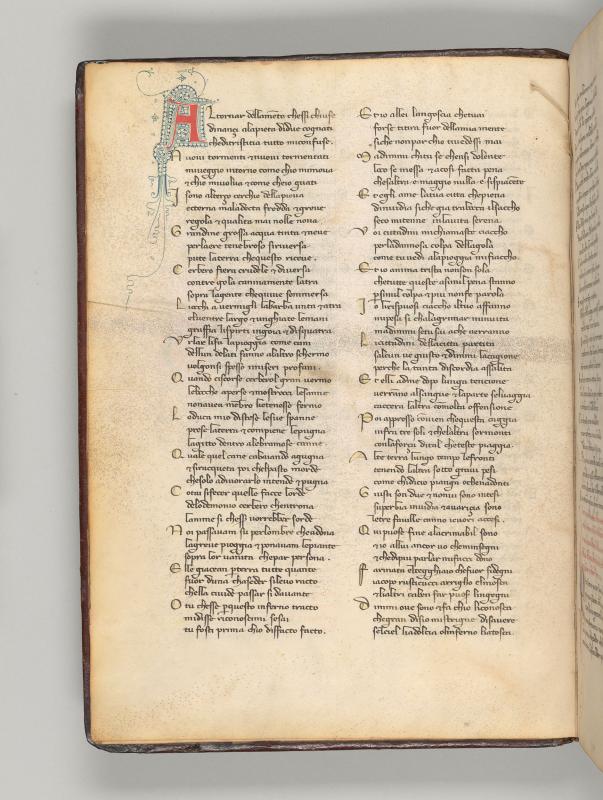 Al tornar dellamēto chessi chiuse
dinanzi alapieta didue cognati
cheditristitia tutto miconfuse.
Nuovi tormenti & nuovi tormentati
miveggio intorno come chio mimova
& chio mivolva & come cheio guati
Io sono alterço cerchio dellapiova
eterna maladecta fredda & greve
regola & qualita mai nolle nova
Grandine grossa acqua tinta & neve
perlaere tenebroso siriversa
pute laterra chequesto riceve.
Cerbero fiera crudele & diversa
contre gola caninamente latra
sopra lagente chequive sommersa
Liocchi a vermigli labarba unta & atra
elventre largo & unghiate lemani
graffia lispirti ingoia & disquatra
Urlar lifa lapioggia come cani
dellun delati fanno alaltro schermo
volgonsi spesso imiseri profani.
Quando ciscorse cerbero il gran vermo
lebocche aperse & mostrocci lesanne
nonavea mēbro chetenesse fermo
Loduca mio distese lesue spanne
prese laterra & compiene lepugna
lagitto dentro alebramose canne
Quale quel cane cabaiando agugna
& siracqueta poi chelpasto morde
chesolo adivorarlo intende & pugna
Cotai sifecer quelle facce lorde
delodemonio cerbero chentrona
lanime si chesser vorrebber sorde
Noi passavam su perlombre cheadona
lagreve pioggia & ponavam lepiante
sopra lor vanita chepar persona.
Elle giacean pterra tutte quante
fuor duna chaseder silevo ratto
chella civide passar si davante
O tu chesse pquesto inferno tracto
midisse riconoscimi sesai
tu fosti prima chio disfacto facto.
Et io allei langoscia chetuai
forse titira fuor dellamia mente
siche nonpar chio tivedessi mai
Ma dimmi chitu se chensi dolente
laco se messa & acosi facta pena
chesaltre maggio nulla e sispiacēte
Et egli ame latua citta chepiena
dinvidia siche gia trabocca ilsaccho
seco mitenne inlavita serena.
Voi cittadini michiamaste ciaccho
perladannosa colpa dellagola
come tu vedi alapioggia mifiaccho.
Et io anima trista nonson sola
chetutte queste asimil pena stanno
psimil colpa & piu nonfe parola
Io lirispuosi ciaccho iltuo affanno
mipesa si chalagrimar minvita
madimmi setu sai ache verranno
Licittadini dellacitta partita
salcun ve giusto & dimmi lacagione
perche la tanta discordia assalita
Et elli adme dopo lunga tencione
verrano alsangue & laparte selvaggia
caccera laltra conmolta offensione
Poi appresso convien chequesta caggia
infra tre soli & chelaltra sormonti
conlaforça dital cheteste piaggia.
Alte terra lungo tempo lefronti
tenendo laltra sotto gravi pesi
come chidicio pianga & chenadonti
Giusti son due & nonvi sono intesi
superbia invidia & avaritia sono
letre faville canno icuori accesi.
Qui puose fine alacrimabil sono
& io allui ancor vo cheminsegni
& chedipiu parlar mifacci dono
Farinata eltegghiaio chefuor sidegni
iacopo rusticucci arrigho elmosca
& lialtri caben far puoser lingegni
Dimmi ove sono & fa chio liconosca
chegran disio mistringne disavere
selciel liadolcia olinferno liatosca